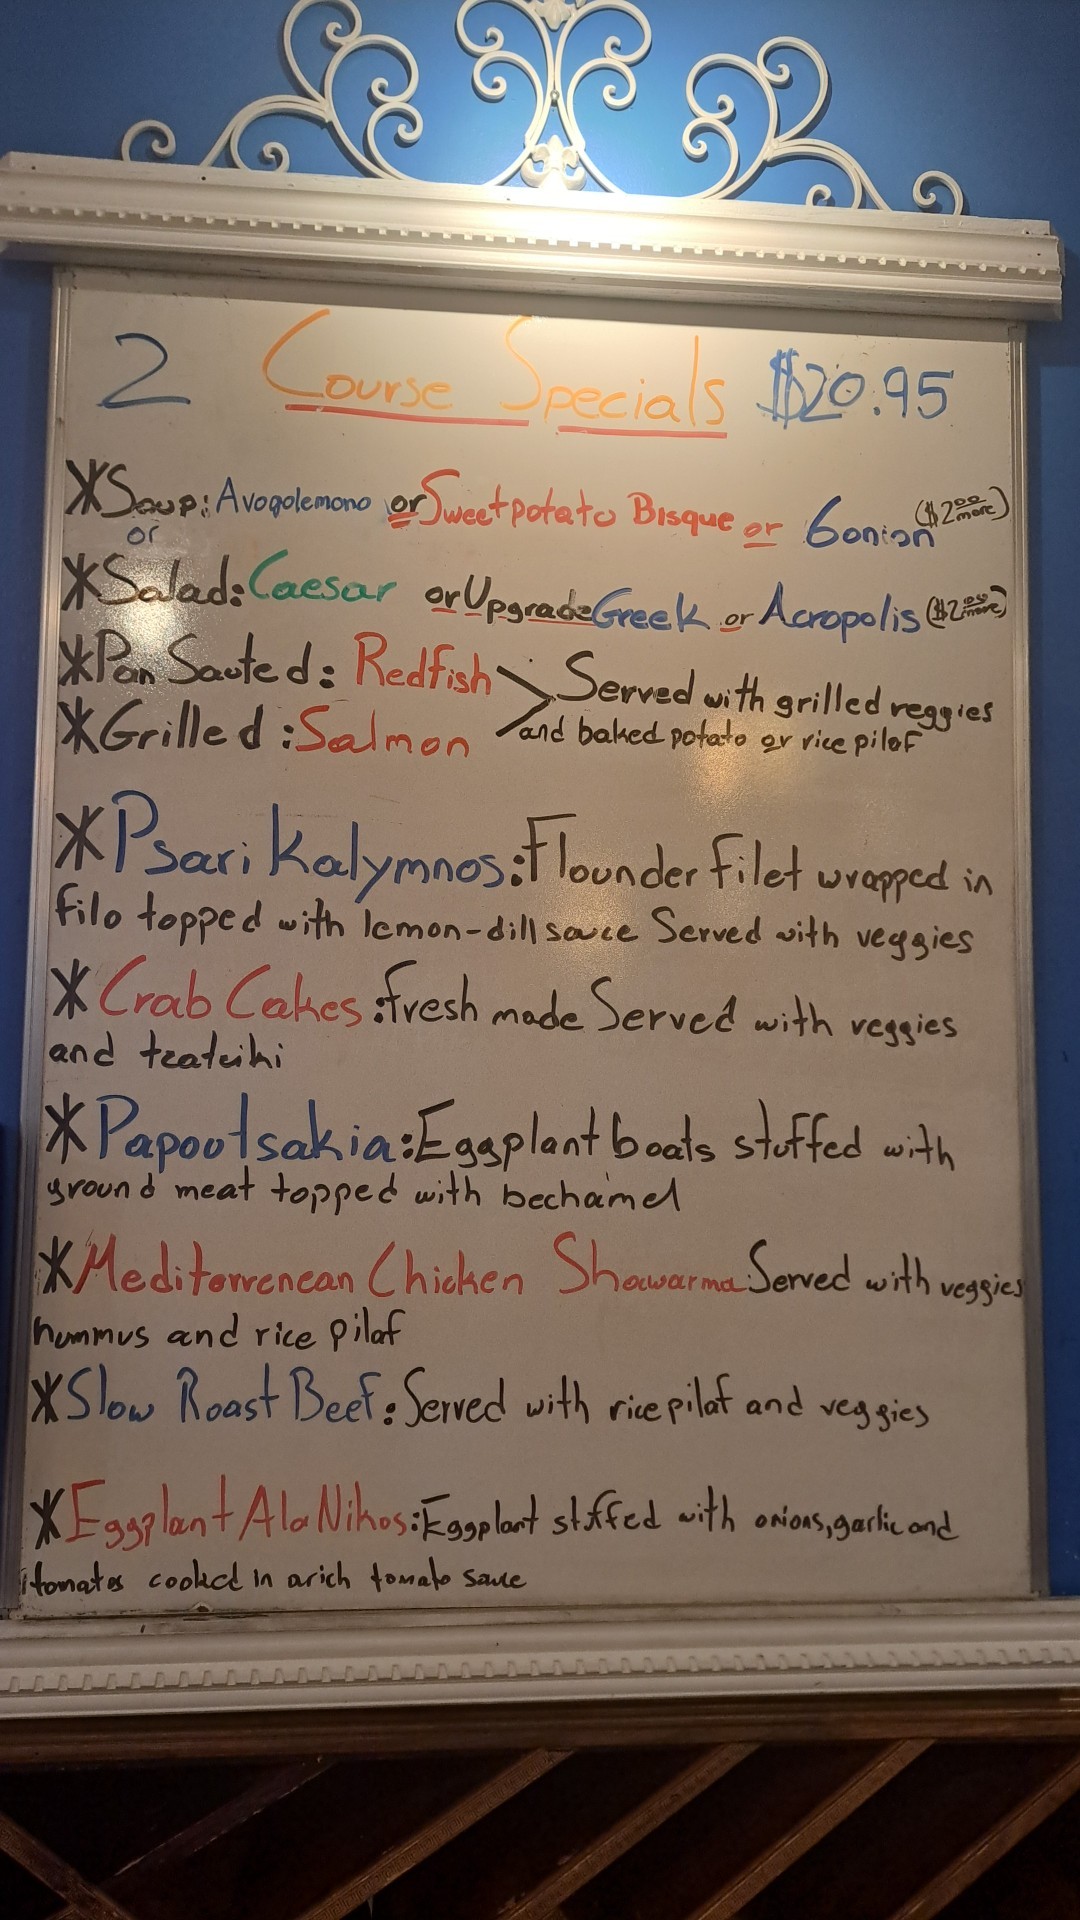 2 Course Specials $20.95
*Soup: Avogolemono or Sweet potato Bisque or 6onion ($2.00 more)
or
*Salad: Caesar or Upgrade Greek or Acropolis ($2.00 more)
*Pan Sauted: Redfish > Served with grilled veggies
*Grilled: Salmon and baked potato or rice pilaf
*Psari Kalymnos: Flounder filet wrapped in
filo topped with lemon-dill sauce Served with veggies
*Crab Cakes: fresh made Served with veggies
and tzatziki
*Papootsakia: Eggplant boats stuffed with
ground meat topped with bechamel
*Mediterrenean Chicken Shawarma: Served with veggies
hummus and rice pilaf
*Slow Roast Beef: Served with rice pilaf and veggies
*Eggplant Ala Nikos: Eggplant stuffed with onions, garlic and
tomatos cooked in a rich tomato sauce